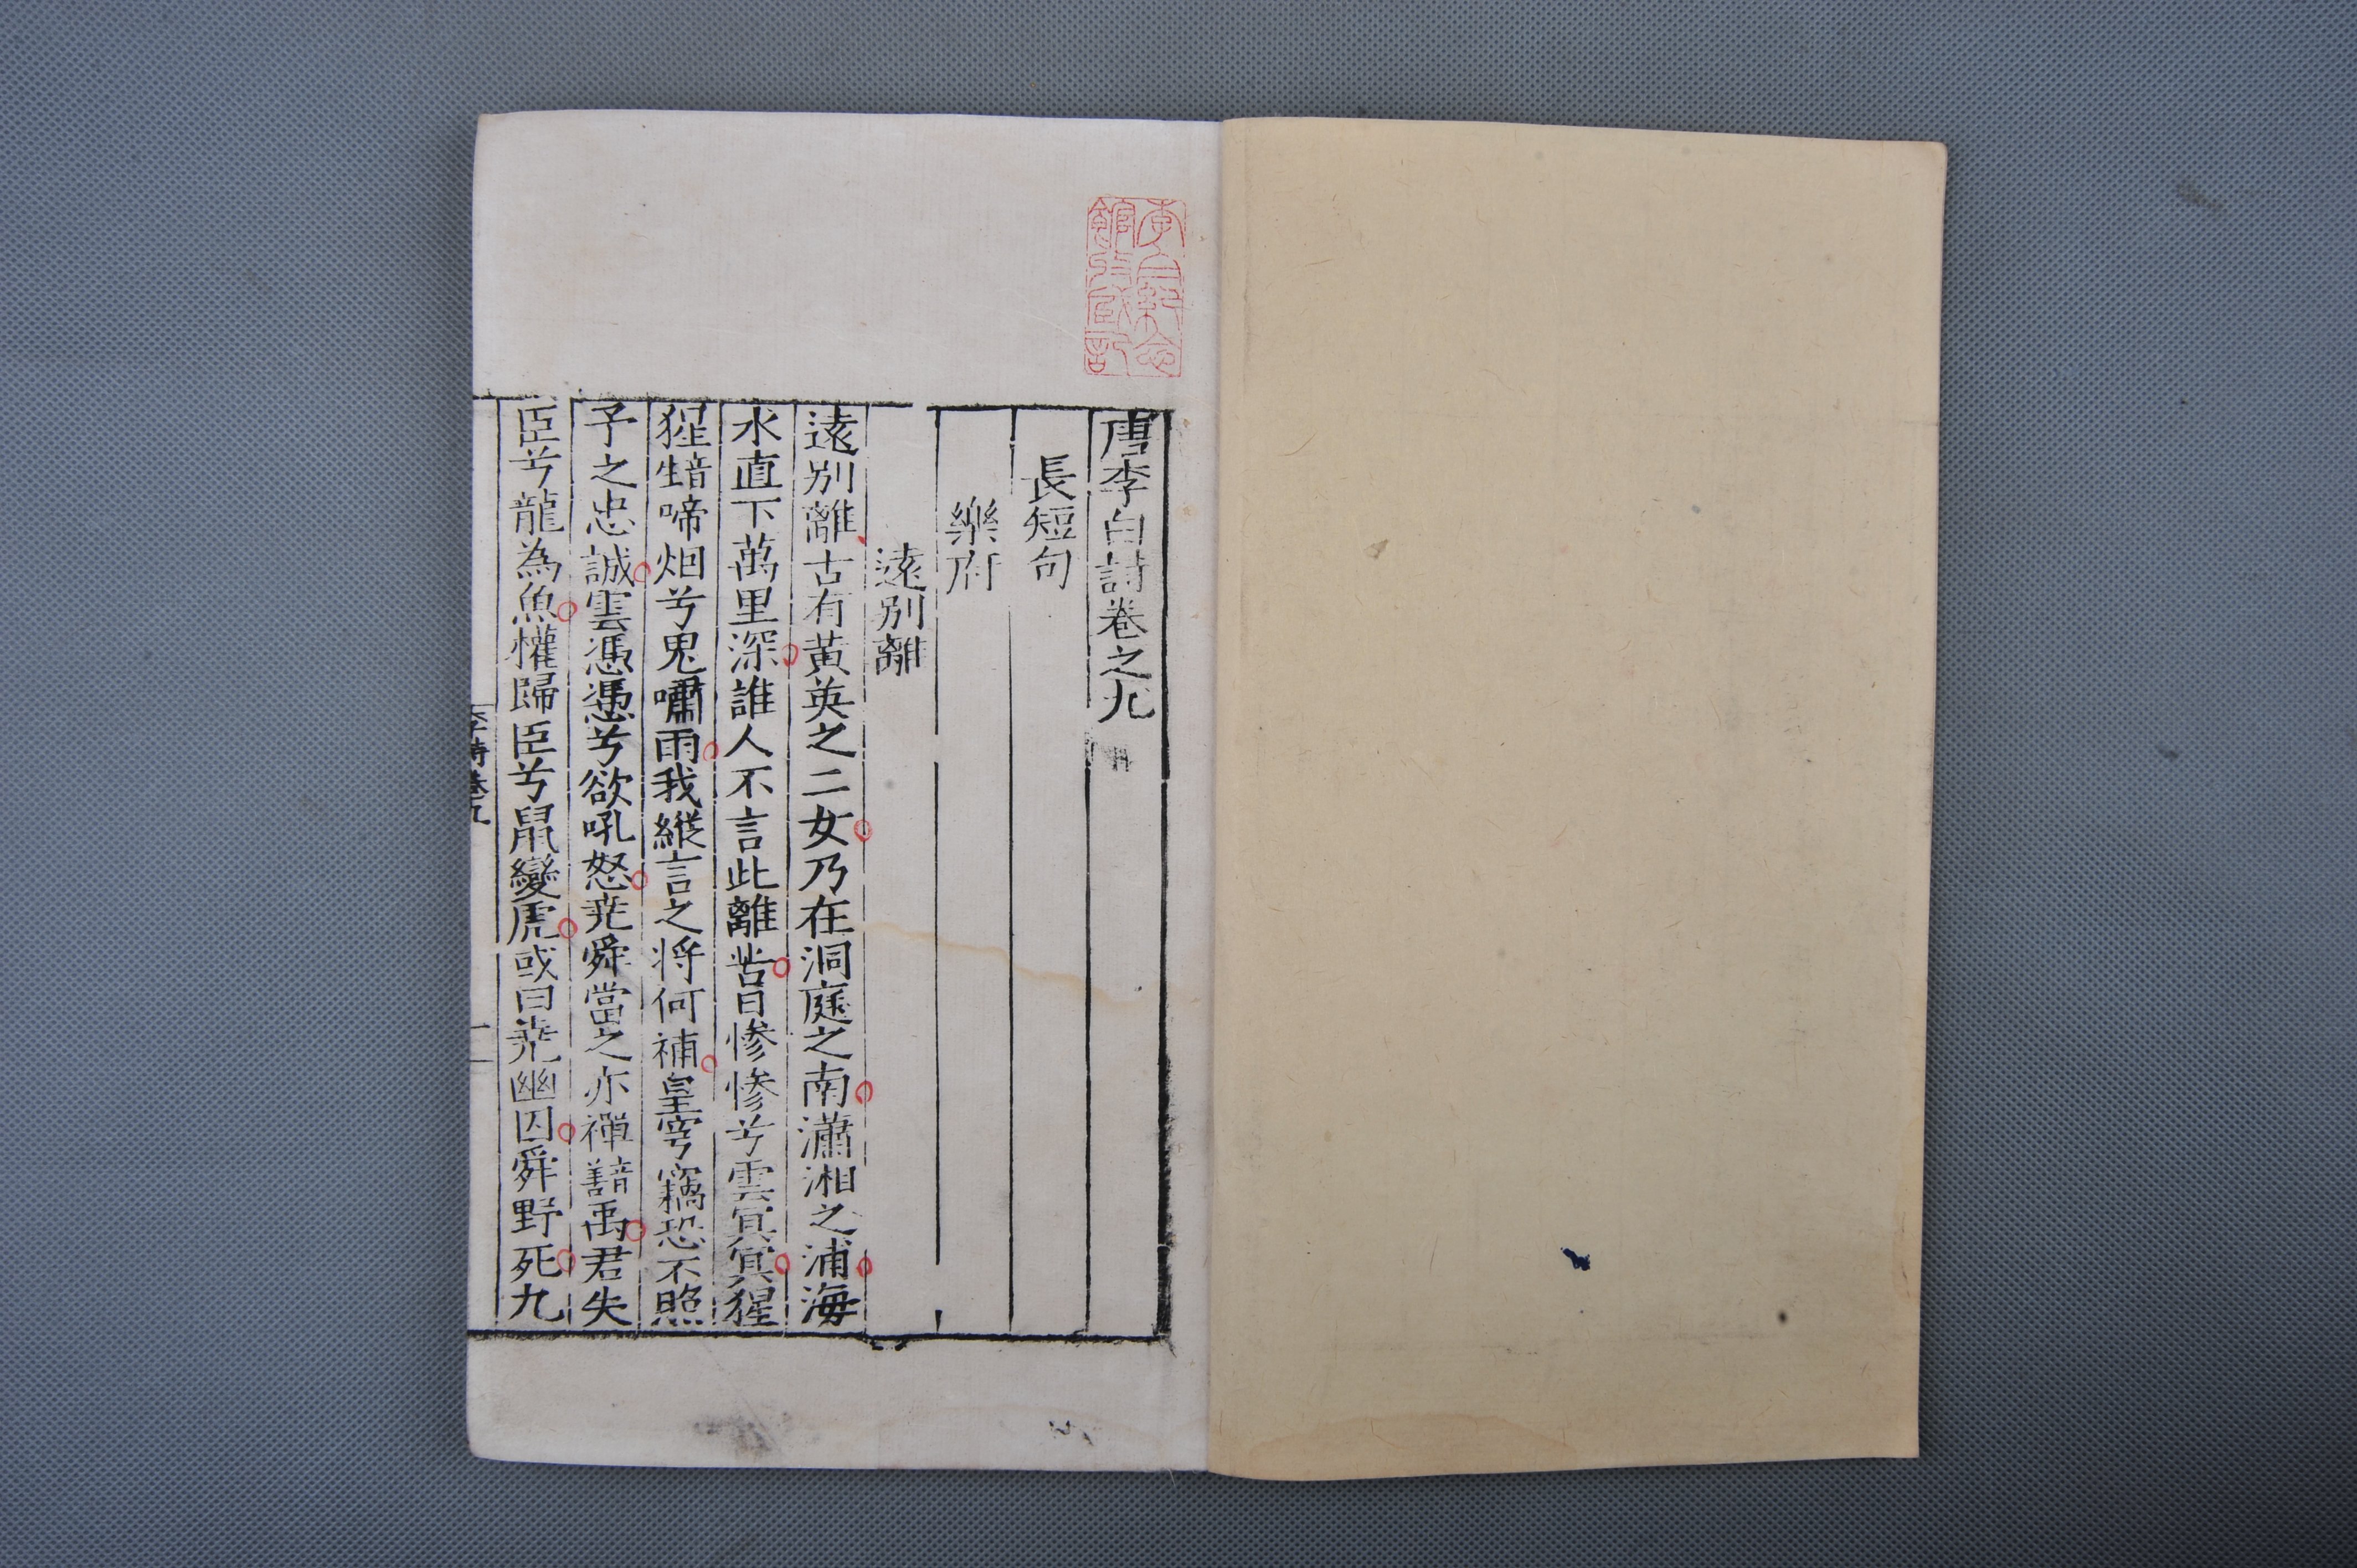 唐李白詩卷之九
長短句
樂府
遠別離
遠別離古有黃英之二女乃在洞庭之南瀟湘之浦海
水直下萬里深誰人不言此離苦日慘慘兮雲冥冥猩
猩啼烟兮鬼嘯雨我縱言之將何補皇穹竊恐不照
予之忠誠雲憑憑兮欲吼怒堯舜當之亦禪禹君失
臣兮龍為魚權歸臣兮鼠變虎或曰堯幽囚舜野死九
李詩卷九
李白紀念
館收藏記